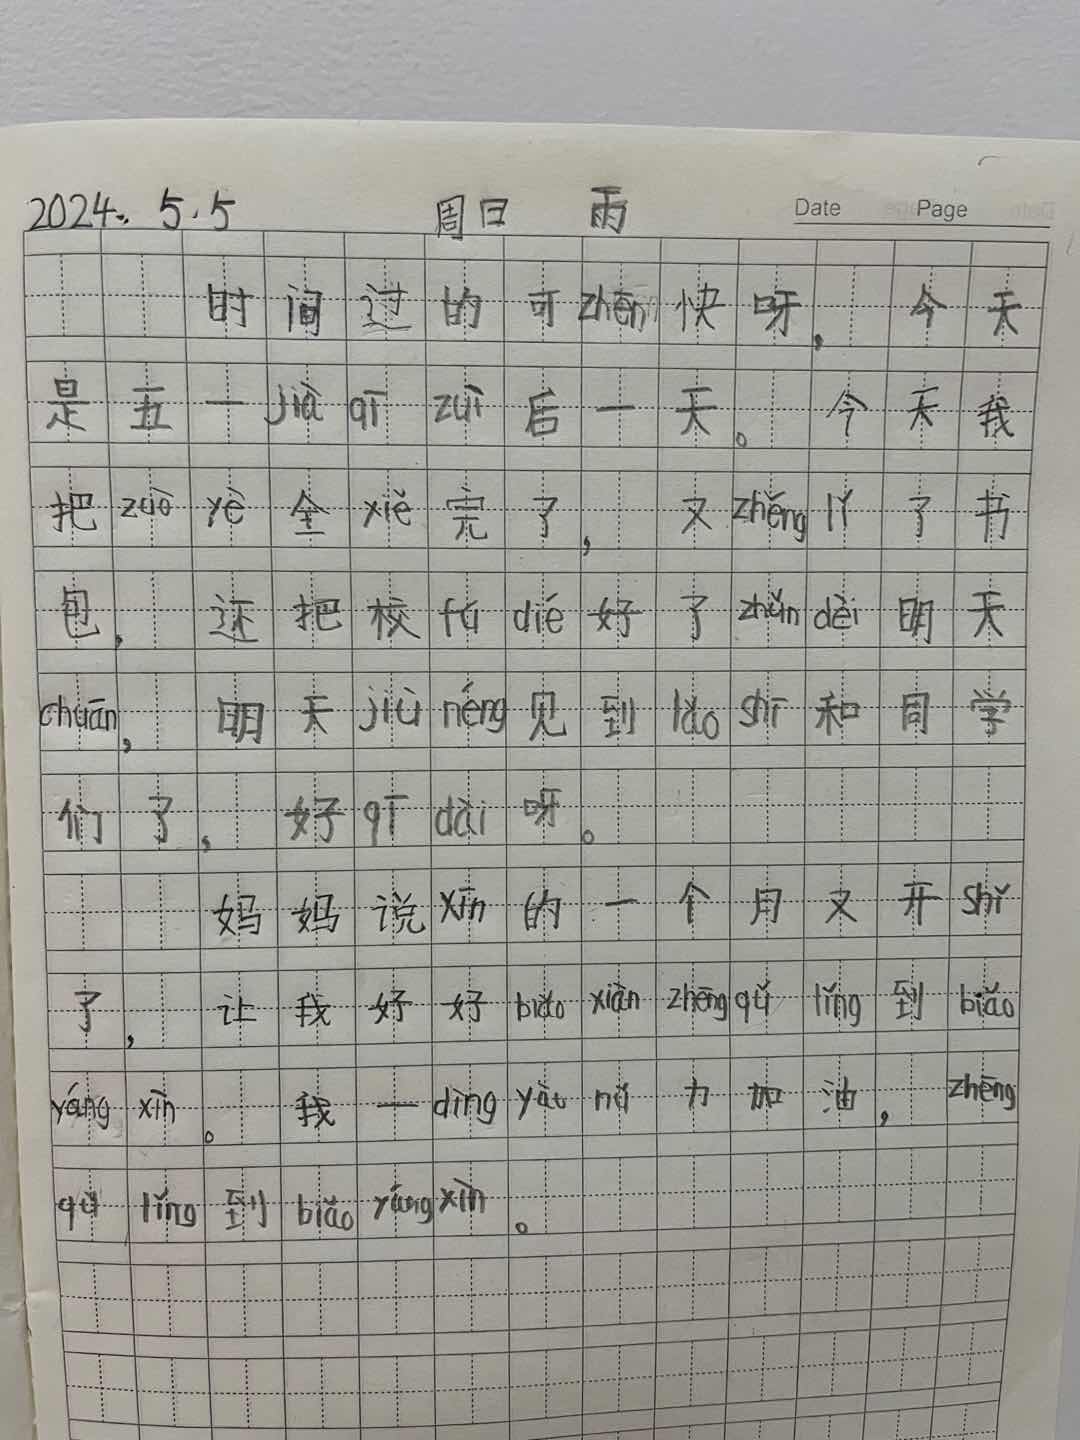 2024. 5.5 周日 雨 Date Page
时间过的可zhēn快呀，今天
是五一jià qī zuì后一天。今天我
把zuò yè全xiě完了，又zhěng lǐ了书
包，还把校fú dié好了zhǔn dèi明天
chuān，明天jiù néng见到lǎo shī和同学
们了，好qī dài呀。
妈妈说xīn的一个月又开shǐ
了，让我好好biǎo xiàn zhēng qǔ lǐng到biǎo
yáng xìn。我一dìng yào nǔ力加油，zhēng
qǔ lǐng到biǎo yáng xìn。